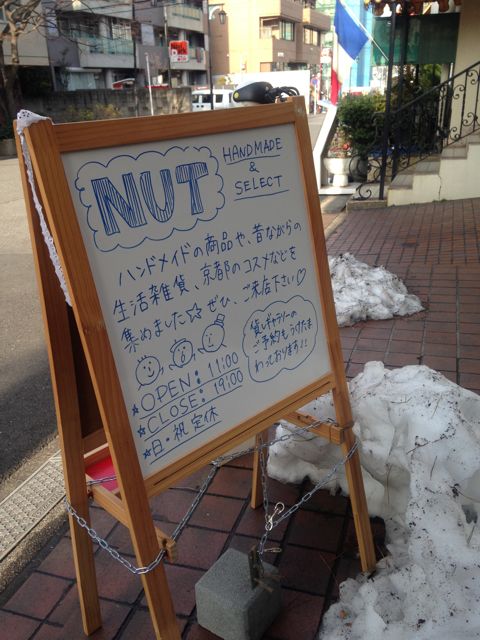 NUT
HANDMADE
&
SELECT
ハンドメイドの商品や、昔ながらの
生活雑貨、京都のコスメなどを
集めました☆ ぜひ、ご来店下さい♡
貸しギャラリーの
ご予約もうけたま
わっております!!
★OPEN: 11:00
★CLOSE: 19:00
★日・祝 定休